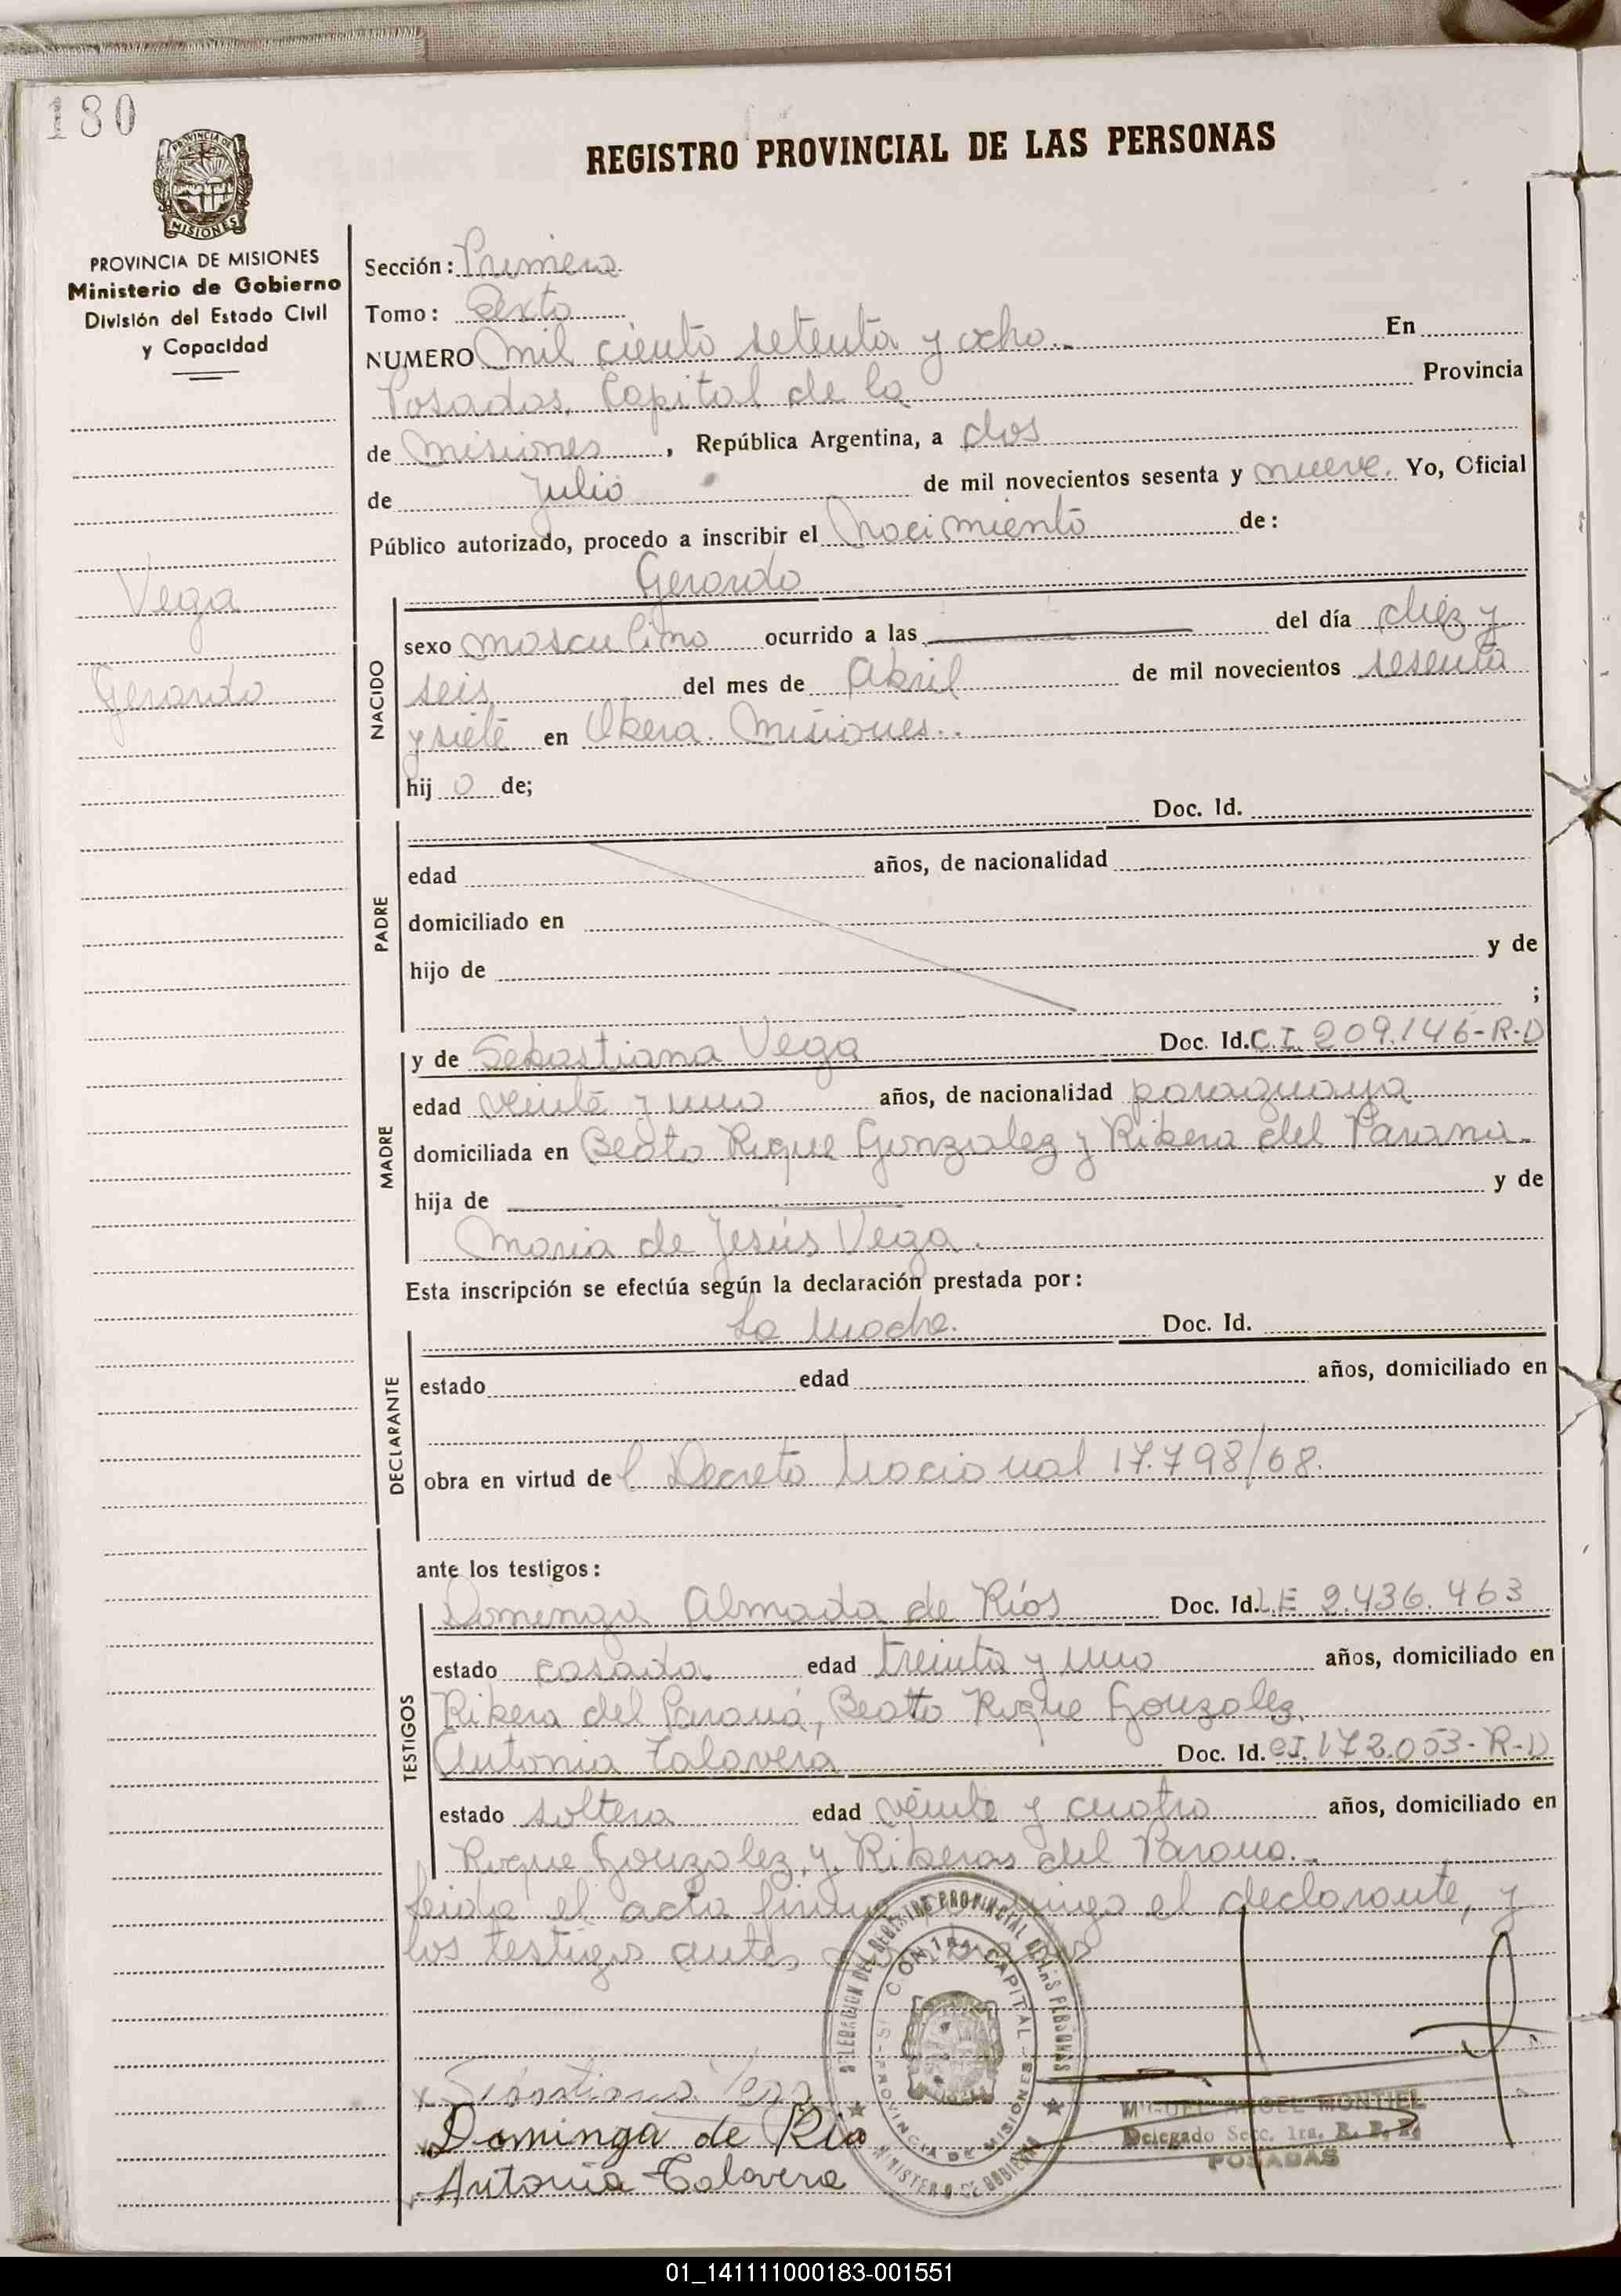 180
REGISTRO PROVINCIAL DE LAS PERSONAS
PROVINCIA DE MISIONES
Ministerio de Gobierno
División del Estado Civil
y Capacidad
Vega
Gerardo
Sección: Primera
Tomo: Sexto
NUMERO Mil ciento setenta y ocho.- En
Posadas, Capital de la Provincia
de Misiones, República Argentina, a dos
de Julio de mil novecientos sesenta y nueve. Yo, Oficial
Público autorizado, procedo a inscribir el Nacimiento de:
Gerardo
NACIDO
sexo masculino ocurrido a las del día diez y
seis del mes de Abril de mil novecientos sesenta
y siete en Obera. Misiones..
hij o de;
PADRE
Doc. Id.
edad años, de nacionalidad
domiciliado en
hijo de y de
;
MADRE
y de Sebastiana Vega Doc. Id. C.I. 209.146-R-D
edad veinte y uno años, de nacionalidad paraguaya
domiciliada en Beato Roque Gonzalez y Ribera del Parana.
hija de y de
Maria de Jesús Vega.
Esta inscripción se efectúa según la declaración prestada por:
DECLARANTE
La Madre. Doc. Id.
estado edad años, domiciliado en
obra en virtud del Decreto Nacional 17.798/68.
ante los testigos:
TESTIGOS
Dominga Almada de Ríos Doc. Id. L.E 2.436.463
estado casada edad treinta y uno años, domiciliado en
Ribera del Paraná, Beatto Roque Gonzalez.
Antonia Talavera Doc. Id. CI. 172.053-R-D
estado soltera edad veinte y cuatro años, domiciliado en
Roque Gonzalez y Riberas del Parana.-
Leida el acta el declarante, y
los testigos antes
DELEGACION DEL REGISTRO PROVINCIAL DE LAS PERSONAS
CAPITAL
PROVINCIA DE MISIONES
MINISTERIO DE GOBIERNO
Vega
Dominga de Rio
Antonia Talavera
MIGUEL ANGEL MONTIEL
Delegado Secc. 1ra. R. P. P.
POSADAS
01_141111000183-001551